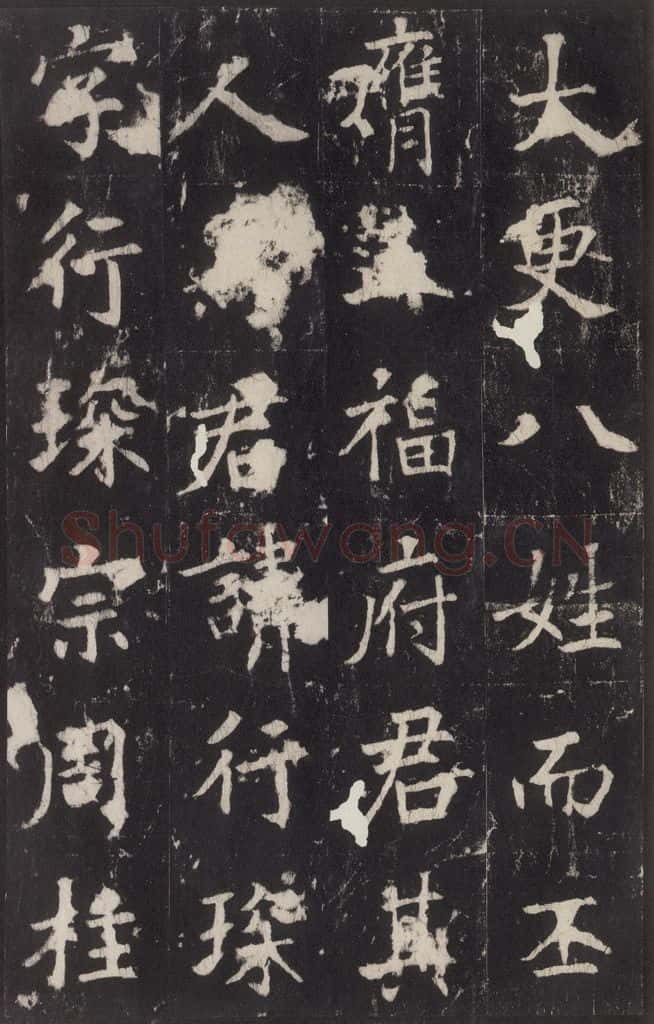 大更八姓而丕
膺福府君其
人君諱行琛
字行琛宗周柱
Shufawang.CN